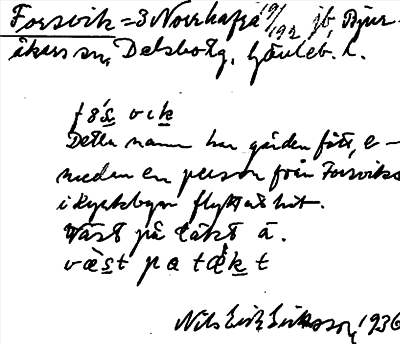 Forsvik = 3 Norrhafrå 19/192 jb, Bjur-
åkers sn, Delsbo tg, Gävleb. l.
fo̍s̱ vik̲
Detta namn har gården fått, e-
medan en person från Forsviks
i Kyrkbyn flyttat hit.
Väst på täkt å.
væ̀s̱t pa tæ̍k̲t
Nils Erik Eriksson, 1936